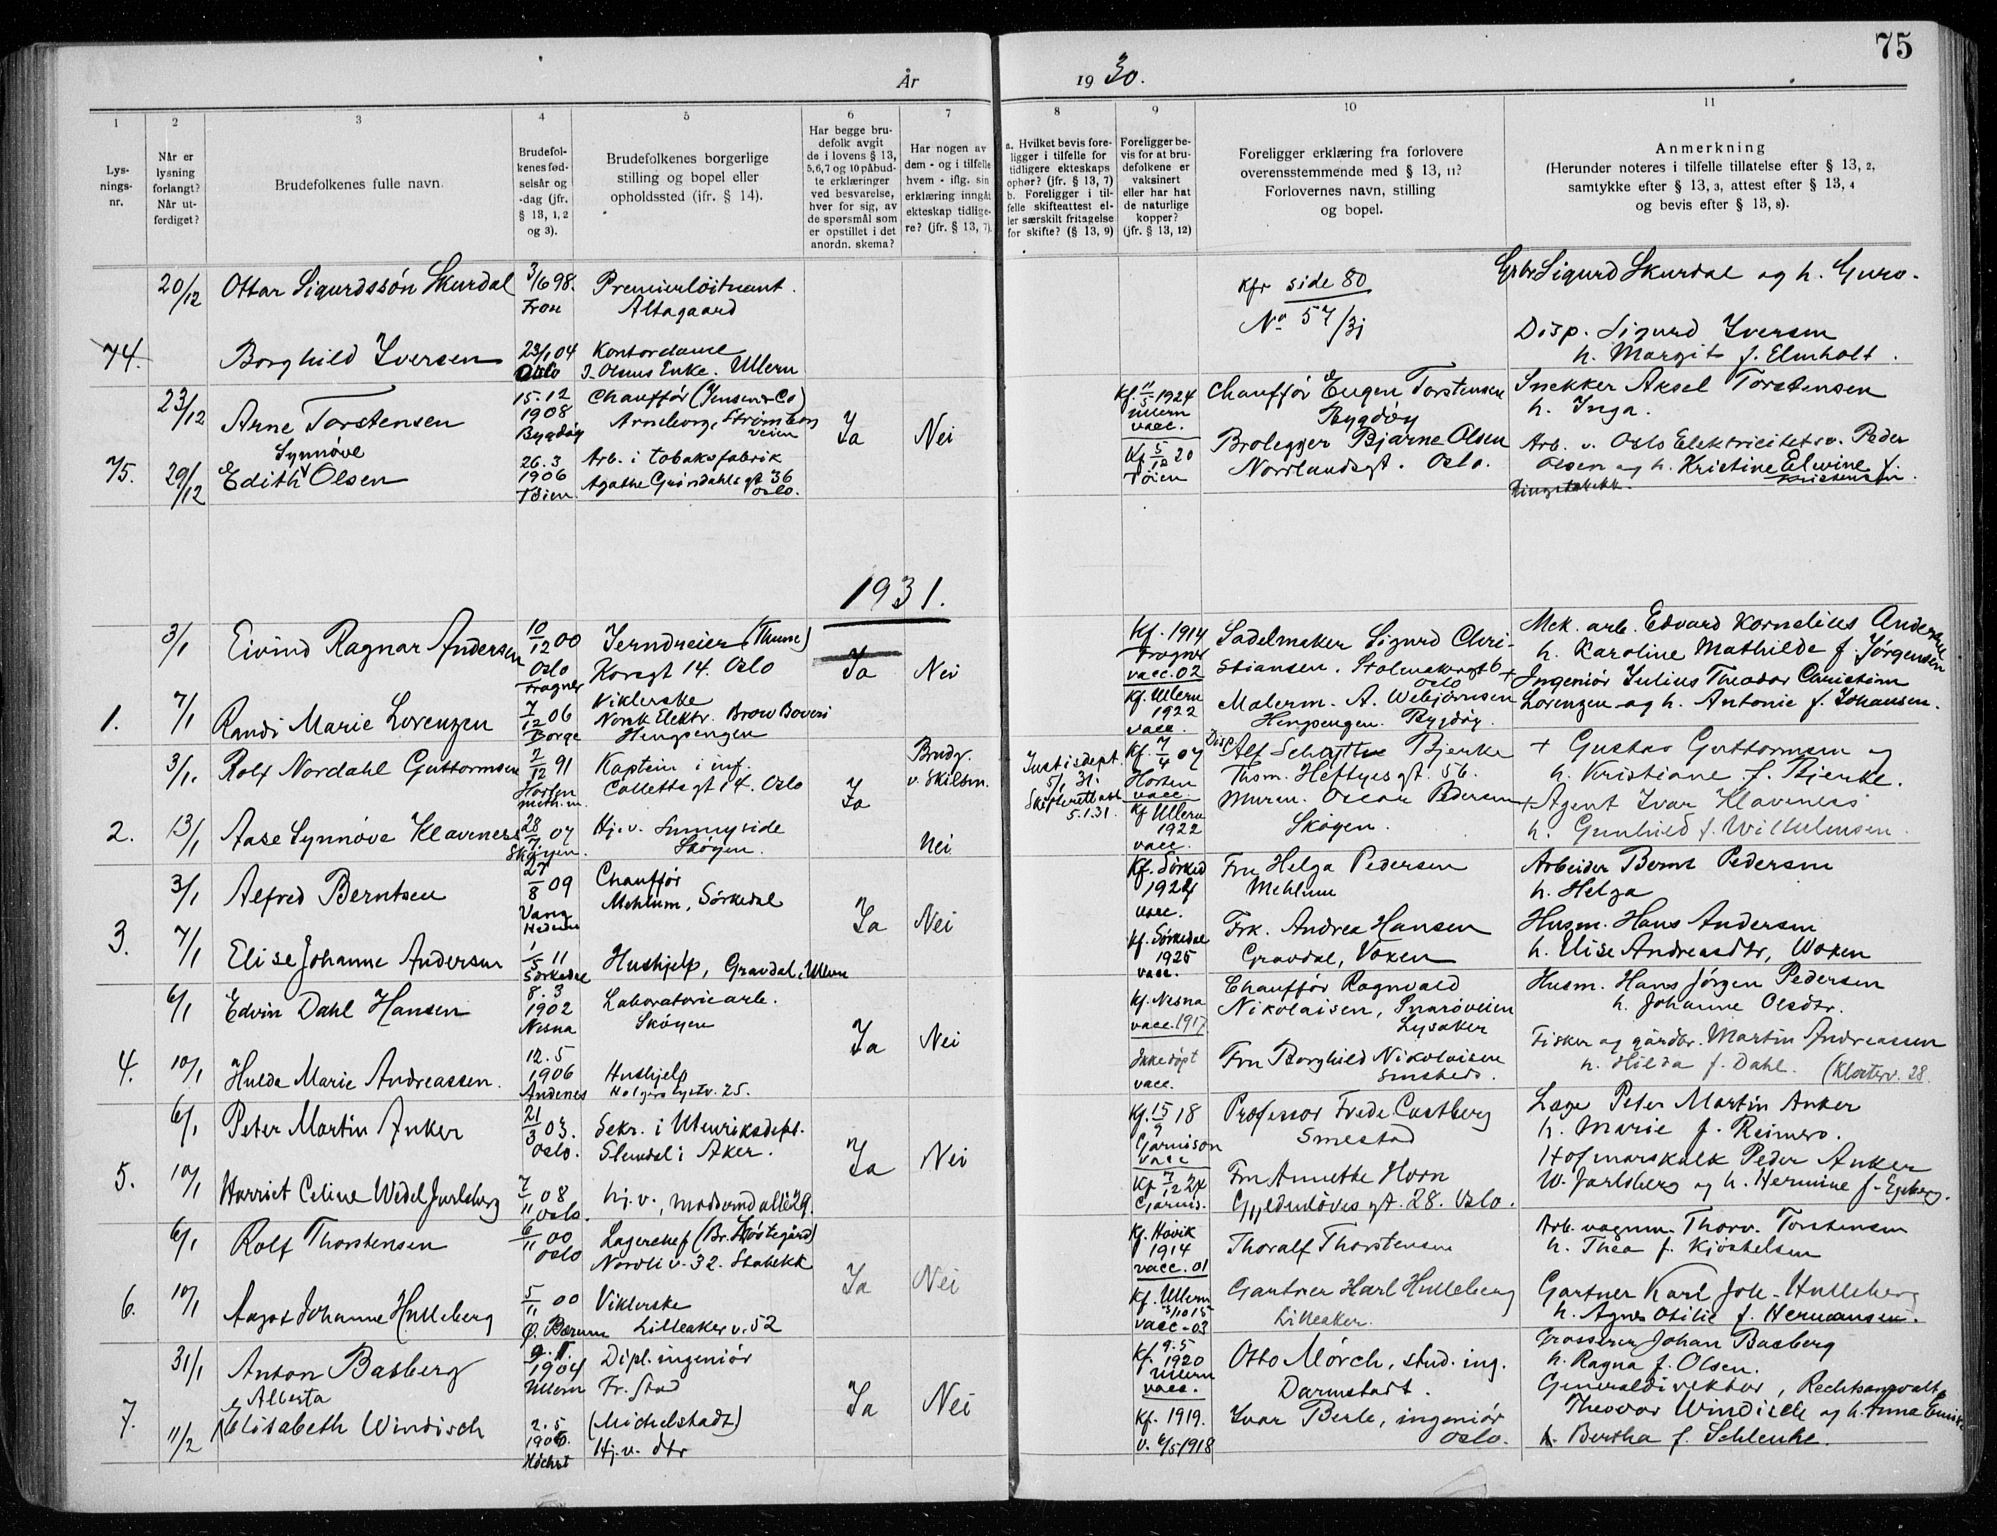 75
År 1930.
1
2
3
4
5
6
7
8
9
10
11
Lys-
nings-
nr.
Når er
lysning
forlangt?
Når ut-
ferdiget?
Brudefolkenes fulle navn.
Brudefol-
kenes fød-
selsår og
-dag (jfr.
§ 13, 1, 2
og 3).
Brudefolkenes borgerlige
stilling og bopel eller
opholdssted (jfr. § 14).
Har begge bru-
defolk avgit
de i lovens § 13,
5,6,7 og 10 påbud-
te erklæringer
ved besvarelse,
hver for sig, av
de spørsmål som
er opstillet i det
anordn. skema?
Har nogen av
dem - og i tilfelle
hvem - iflg. sin
erklæring inngått
ekteskap tidlige-
re? (jfr. § 13, 7).
a. Hvilket bevis fore-
ligger i tilfelle for
tidligere ekteskaps
ophør? (jfr. § 13, 7)
b. Foreligger i til-
felle skifteattest el-
ler særskilt fritagelse
for skifte? (§ 13, 9)
Foreligger be-
vis for at bru-
defolkene er
vaksinert
eller har hat
de naturlige
kopper?
(jfr. § 13, 12)
Foreligger erklæring fra forlovere
overensstemmende med § 13, 11?
Forlovernes navn, stilling
og bopel.
Anmerkning
(Herunder noteres i tilfelle tillatelse efter § 13, 2,
samtykke efter § 13, 3, attest efter § 13, 4
og bevis efter § 13, 8).
20/12 Ottar Sigurdssøn Skurdal
3/6 98.
Fron
Premierløitnant.
Altagaard
Kfr side 80
No 57/31
Grbr Sigurd Skurdal og h. Guro.
74.
Borghild Iversen
23/1 04
Oslo
Kontordame
J. Olsens Enke. Ullern
Disp. Sigurd Iversen
h. Margit f. Elmholt.
23/12
Arne Torstensen
15.12
1908
Bygdøy
Chauffør (Jensen & Co)
Arneborg, Strømsborg
veien
Ja
Nei
Kf. 11/5 1924
Ullern
vacc.
Chauffør Eugen Torstensen
Bygdøy
Snekker Aksel Torstensen
h. Inga.
75. 29/12
Synnøve
Edith Olsen
26.3
1906
Tøien
Arb. i tobaksfabrik
Agathe Grøndahls gt 36
Oslo.
Kf 5/12 20
Tøien
Brolegger Bjarne Olsen
Norrlandsgt. Oslo.
Arb. v. Oslo Elektricitetsv. Peder
Olsen og h. Kristine Elvine f.
Kristensen
1931.
3/1
Eivind Ragnar Andersen
10/12 00
Oslo
Frogner
Jerndreier (Thune)
Korsgt 14. Oslo
Ja
Nei
Kf. 1914
Frogner
vacc. 02
Sadelmaker Sigurd Chri-
stiansen. Stolmakergt 6
Oslo
Mek. arb. Edvard Kornelius Andersen
h. Karoline Mathilde f. Jørgensen
1. 7/1
Randi Marie Lorenzen
7/12 06
Borge
Viklerske
Norsk Elektr. Brow Boveri
Hengsengen
Kf. Ullern
1922
vacc.
Malerm. A. Webjørnsen
Hengsengen. Bygdøy.
+ Ingeniør Julius Theodor Christian
Lorenzen og h. Antonie f. Johansen.
3/1.
Rolf Nordahl Guttormsen
2/12 91
Horten
meth. m.
Kaptein i inf.
Collettsgt 14. Oslo
Ja
Brudg.
v. Skilsm.
Justisdept.
5/1 31.
5.1.31.
Kf. 7/4 07
Horten
vacc.
Disp. Alf Schøtte Bjerke
Thom. Heftyes gt. 56.
+ Gustav Guttormsen og
h. Kristiane f. Bjerke.
2. 13/1
Aase Synnøve Klaveness
28/7. 07
Skøyen.
Hj. v. Sunnyside
Skøyen.
Nei
Kf Ullern
1922
vacc.
Murm. Oscar Pedersen
Skøyen.
+ Agent Ivar Klaveness
h. Gunhild f. Wilhelmsen.
3/1
Alfred Berntsen
27/8 09
Vang
Hedem
Chauffør
Mehlum, Sørkedal
Ja
Nei
Kf. Sørked
1924
vacc.
Fru Helga Pedersen
Mehlum
Arbeider Bernt Pedersen
h. Helga
3. 7/1
Elise Johanne Andersen
1/5 11
Sørkedal
Hushjelp, Gravdal, Ullern
Kf. Sørkedal
1925
vacc.
Frk. Andrea Hansen
Gravdal, Voxen
Husm. Hans Andersen
h. Elise Andreasdtr, Woxen
6/1
Edvin Dahl Hansen
8.3
1902
Nesna
Laboratoriearb.
Skøyen
Ja
Nei
Kf. Nesna
vacc. 1917
Chauffør Ragnvald
Nikolaisen, Snarøveien
Lysaker
Husm. Hans Jørgen Pedersen
h. Johanne Olsdtr.
4. 10/1
Hulda Marie Andreassen.
12.5
1906
Andenes
Hushjelp
Holgerslystv. 25.
Ikke døpt
vacc.
Fru Borghild Nikolaisen
Smsteds.
Fisker og gårdbr. Martin Andreassen
h. Hilda f. Dahl. (Klosterv. 28.
6/1
Peter Martin Anker
21/3 03.
Oslo.
Sekr. i Utenriksdept.
Slemdal i Aker.
Ja
Nei
Kf. 15/9 18
Garnison
vacc
Professor Frede Castberg
Smestad
Læge Peter Martin Anker
h. Marie f. Reimers.
5. 10/1
Harriet Celine Wedel Jarlsberg
7/11 08
Oslo.
hj. v., Madserud allé 29.
Kf 7/12 24
Garnis.
Fru Annette Horn
Gyldenløves gt. 28. Oslo.
Hofmarskalk Peder Anker
W. Jarlsberg og h. Hermine f. Egeberg.
6/1
Rolf Thorstensen
6/11 00
Oslo
Lagerchef (Br. Høstegård)
Nordli v. 32. Stabekk
Ja
Nei
Kf. Høvik
1914
vacc. 01
Thoralf Thorstensen
Arb. vognm. Thorv. Torstensen
h. Thea f. Kjøstelsen
6. 10/1
Aagot Johanne Hulleberg
5/11 00
Ø. Bærum
Viklerske
Lilleaker v. 52
Kf. Ullern
3/10 15
vacc - 03
Gartner Karl Hulleberg
Lilleaker.
Gartner Karl Joh. Hulleberg
h. Agnes Otilie f. Hermansen.
31/1
Anton Basberg
9.1.
1904
Ullern
Dipl. ingeniør
Fr. Stad
Ja
Nei
Kf. 9.5
1920
Ullern
vacc.
Otto Mørch, stud. ing.
Darmstadt.
Grosserer Johan Basberg
h. Ragna f. Olsen.
7. 11/2
Alberta
Elisabeth Windisch
2.5
1906.
Höchst
(Michelstadt)
Hj. v. dtr
Kf. 1919.
v. 6/5 1918
Ivar Berle, ingeniør
Oslo.
Generaldirektør, Rechtsanwalt
Theodor Windisch og h. Anna Emilie
Bertha f. Schlenke.